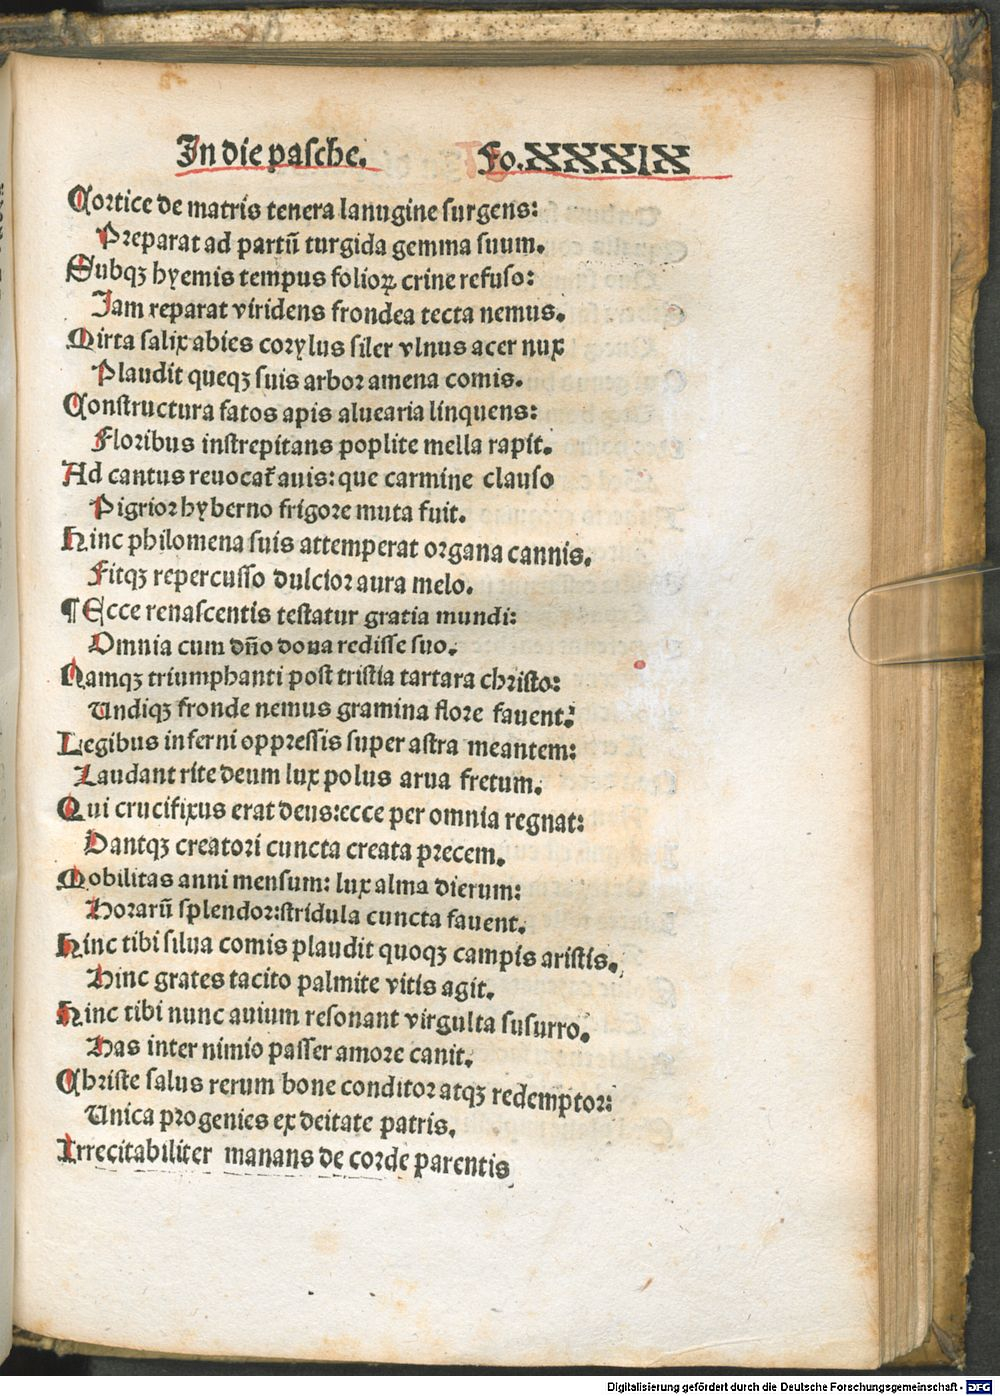 In die pasche. Fo. XXXIX
Cortice de matris tenera lanugine surgens:
Preparat ad partū turgida gemma suum.
Subqꝫ hyemis tempus folioꝝ crine refuso:
Jam reparat viridens frondea tecta nemus.
Mirta salix abies corylus siler vlnus acer nux
Plaudit queqꝫ suis arbor amena comis.
Constructura fatos apis aluearia linquens:
Floribus instrepitans poplite mella rapit.
Ad cantus reuocat᷑ auis: que carmine clauso
Pigrior hyberno frigore muta fuit.
Hinc philomena suis attemperat organa cannis.
Fitqꝫ repercusso dulcior aura melo.
¶ Ecce renascentis testatur gratia mundi:
Omnia cum dn̄o dona redisse suo.
Namqꝫ triumphanti post tristia tartara christo:
Undiqꝫ fronde nemus gramina flore fauent.
Legibus inferni oppressis super astra meantem:
Laudant rite deum lux polus arua fretum.
Qui crucifixus erat deus: ecce per omnia regnat:
Dantqꝫ creatori cuncta creata precem.
Mobilitas anni mensum: lux alma dierum:
Horarū splendor: stridula cuncta fauent.
Hinc tibi silua comis plaudit quoqꝫ campis aristis.
Hinc grates tacito palmite vitis agit.
Hinc tibi nunc auium resonant virgulta susurro.
Has inter nimio passer amore canit.
Christe salus rerum bone conditor atqꝫ redemptor:
Unica progenies ex deitate patris.
Irrecitabiliter manans de corde parentis
Digitalisierung gefördert durch die Deutsche Forschungsgemeinschaft - DFG